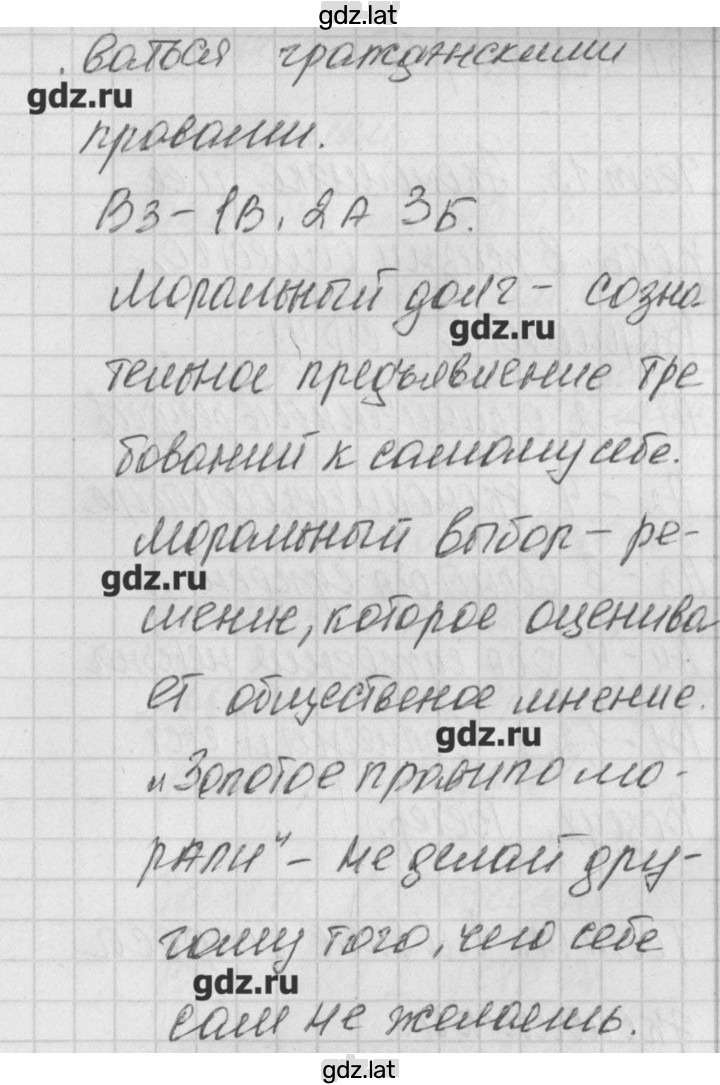 gdz.lat
ваться гражданскими
gdz.ru
правами.
В3 - 1В, 2А 3Б.
Моральный долг - созна
gdz.ru
тельное предъявление тре
бований к самому себе.
Моральный выбор - ре-
gdz.ru
шение, которое оценива
ет общественое мнение.
gdz.ru
"Золотое правило мо-
рали" - не делай дру-
гому того, чего себе
gdz.ru
сам не желаешь.
gdz.lat